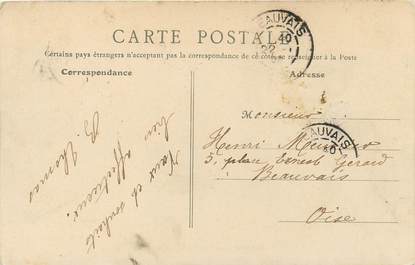 CARTE POSTALE
Certains pays étrangers n'acceptant pas la correspondance de ce côté, se renseigner à la Poste
Correspondance
Adresse
Vœux et souhaits
bien
affectueux.
B. Thomas
Monsieur
Henri
5, place Ernest Gérard
Beauvais
Oise
BEAUVAIS
BEAUVAIS